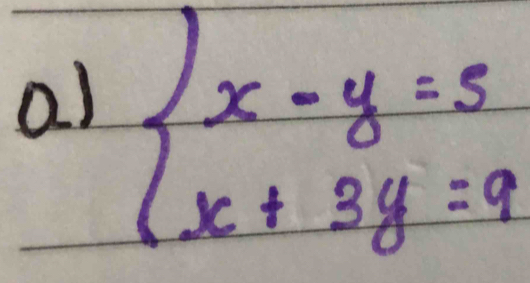 a) { x - y = 5
x + 3y = 9